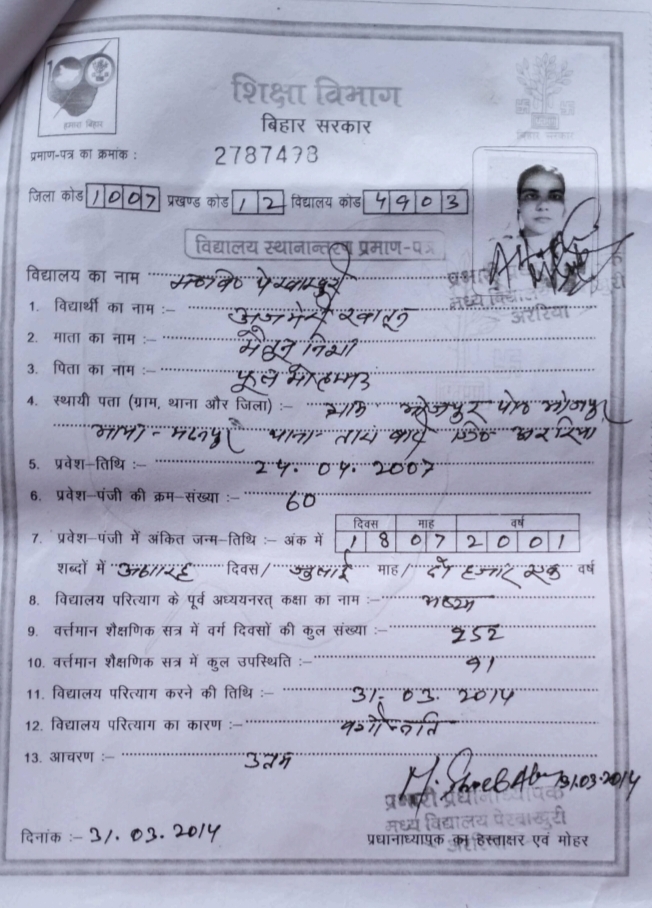 हमारा बिहार
शिक्षा विभाग
बिहार सरकार
बिहार सरकार
प्रमाण-पत्र का क्रमांक : 2787478
जिला कोड 1007 प्रखण्ड कोड 12 विद्यालय कोड 4903
विद्यालय स्थानान्तरण प्रमाण-पत्र
विद्यालय का नाम
प्रभारी
मध्य विद्यालय
अररिया
1. विद्यार्थी का नाम :– अजमेरी खातून
2. माता का नाम :– मैतुन निशा
3. पिता का नाम :– फूल मोहम्मद
4. स्थायी पता (ग्राम, थाना और जिला) :– ग्राम भोजपुर पो० भोजपुर
भाया- थाना- तारा बाड़ी जि० अररिया
5. प्रवेश–तिथि :– 24. 04. 2007
6. प्रवेश–पंजी की क्रम–संख्या :– 60
दिवस माह वर्ष
7. प्रवेश–पंजी में अंकित जन्म–तिथि :– अंक में 18 07 2001
शब्दों में अठारह दिवस/ जुलाई माह/ दो हजार एक वर्ष
8. विद्यालय परित्याग के पूर्व अध्ययनरत् कक्षा का नाम :–
9. वर्त्तमान शैक्षणिक सत्र में वर्ग दिवसों की कुल संख्या :– 252
10. वर्त्तमान शैक्षणिक सत्र में कुल उपस्थिति :– 91
11. विद्यालय परित्याग करने की तिथि :– 31. 03. 2014
12. विद्यालय परित्याग का कारण :– वर्गोन्नति
13. आचरण :– उत्तम
31.03.2014
प्रभारी प्रधानाध्यापक
मध्य विद्यालय पेरवाखुरी
अररिया
दिनांक :– 31. 03. 2014
प्रधानाध्यापक का हस्ताक्षर एवं मोहर